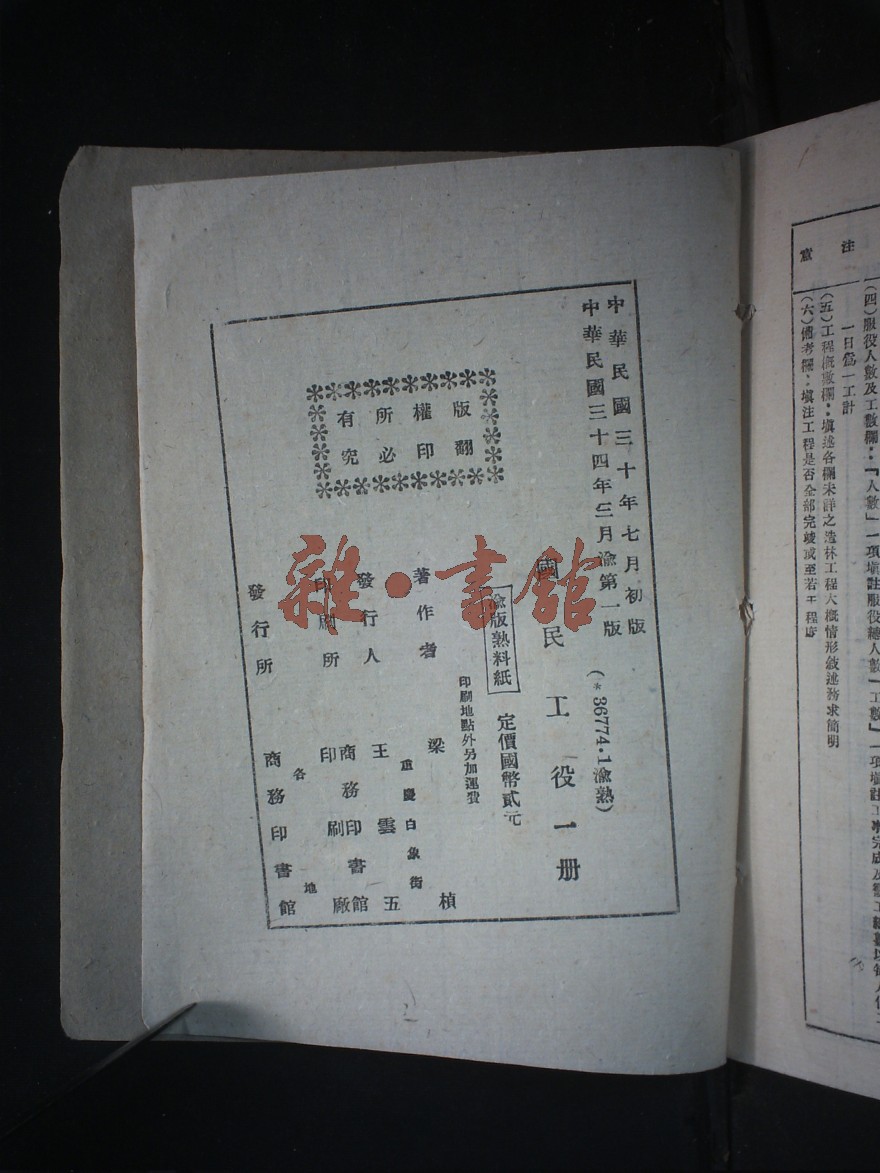 中華民國三十年七月初版
中華民國三十四年三月渝第一版
(*36774.1渝熟)
國民工役一册
渝版熟料紙
定價國幣貳元
印刷地點外另加運費
著作者 梁楨
發行人 王雲五
重慶白象街
印刷所 商務印書館印刷廠
發行所 各地商務印書館
版權所有
翻印必究
雜·書館
注意
(四)服役人數及工數欄:「人數」一項填註服役總人數「工數」一項填註工事完成及徵工總數以每人作工
一日爲一工計
(五)工程概數欄:填述各欄未詳之造林工程大概情形敍述務求簡明
(六)備考欄:填注工程是否全部完竣或至若干程度